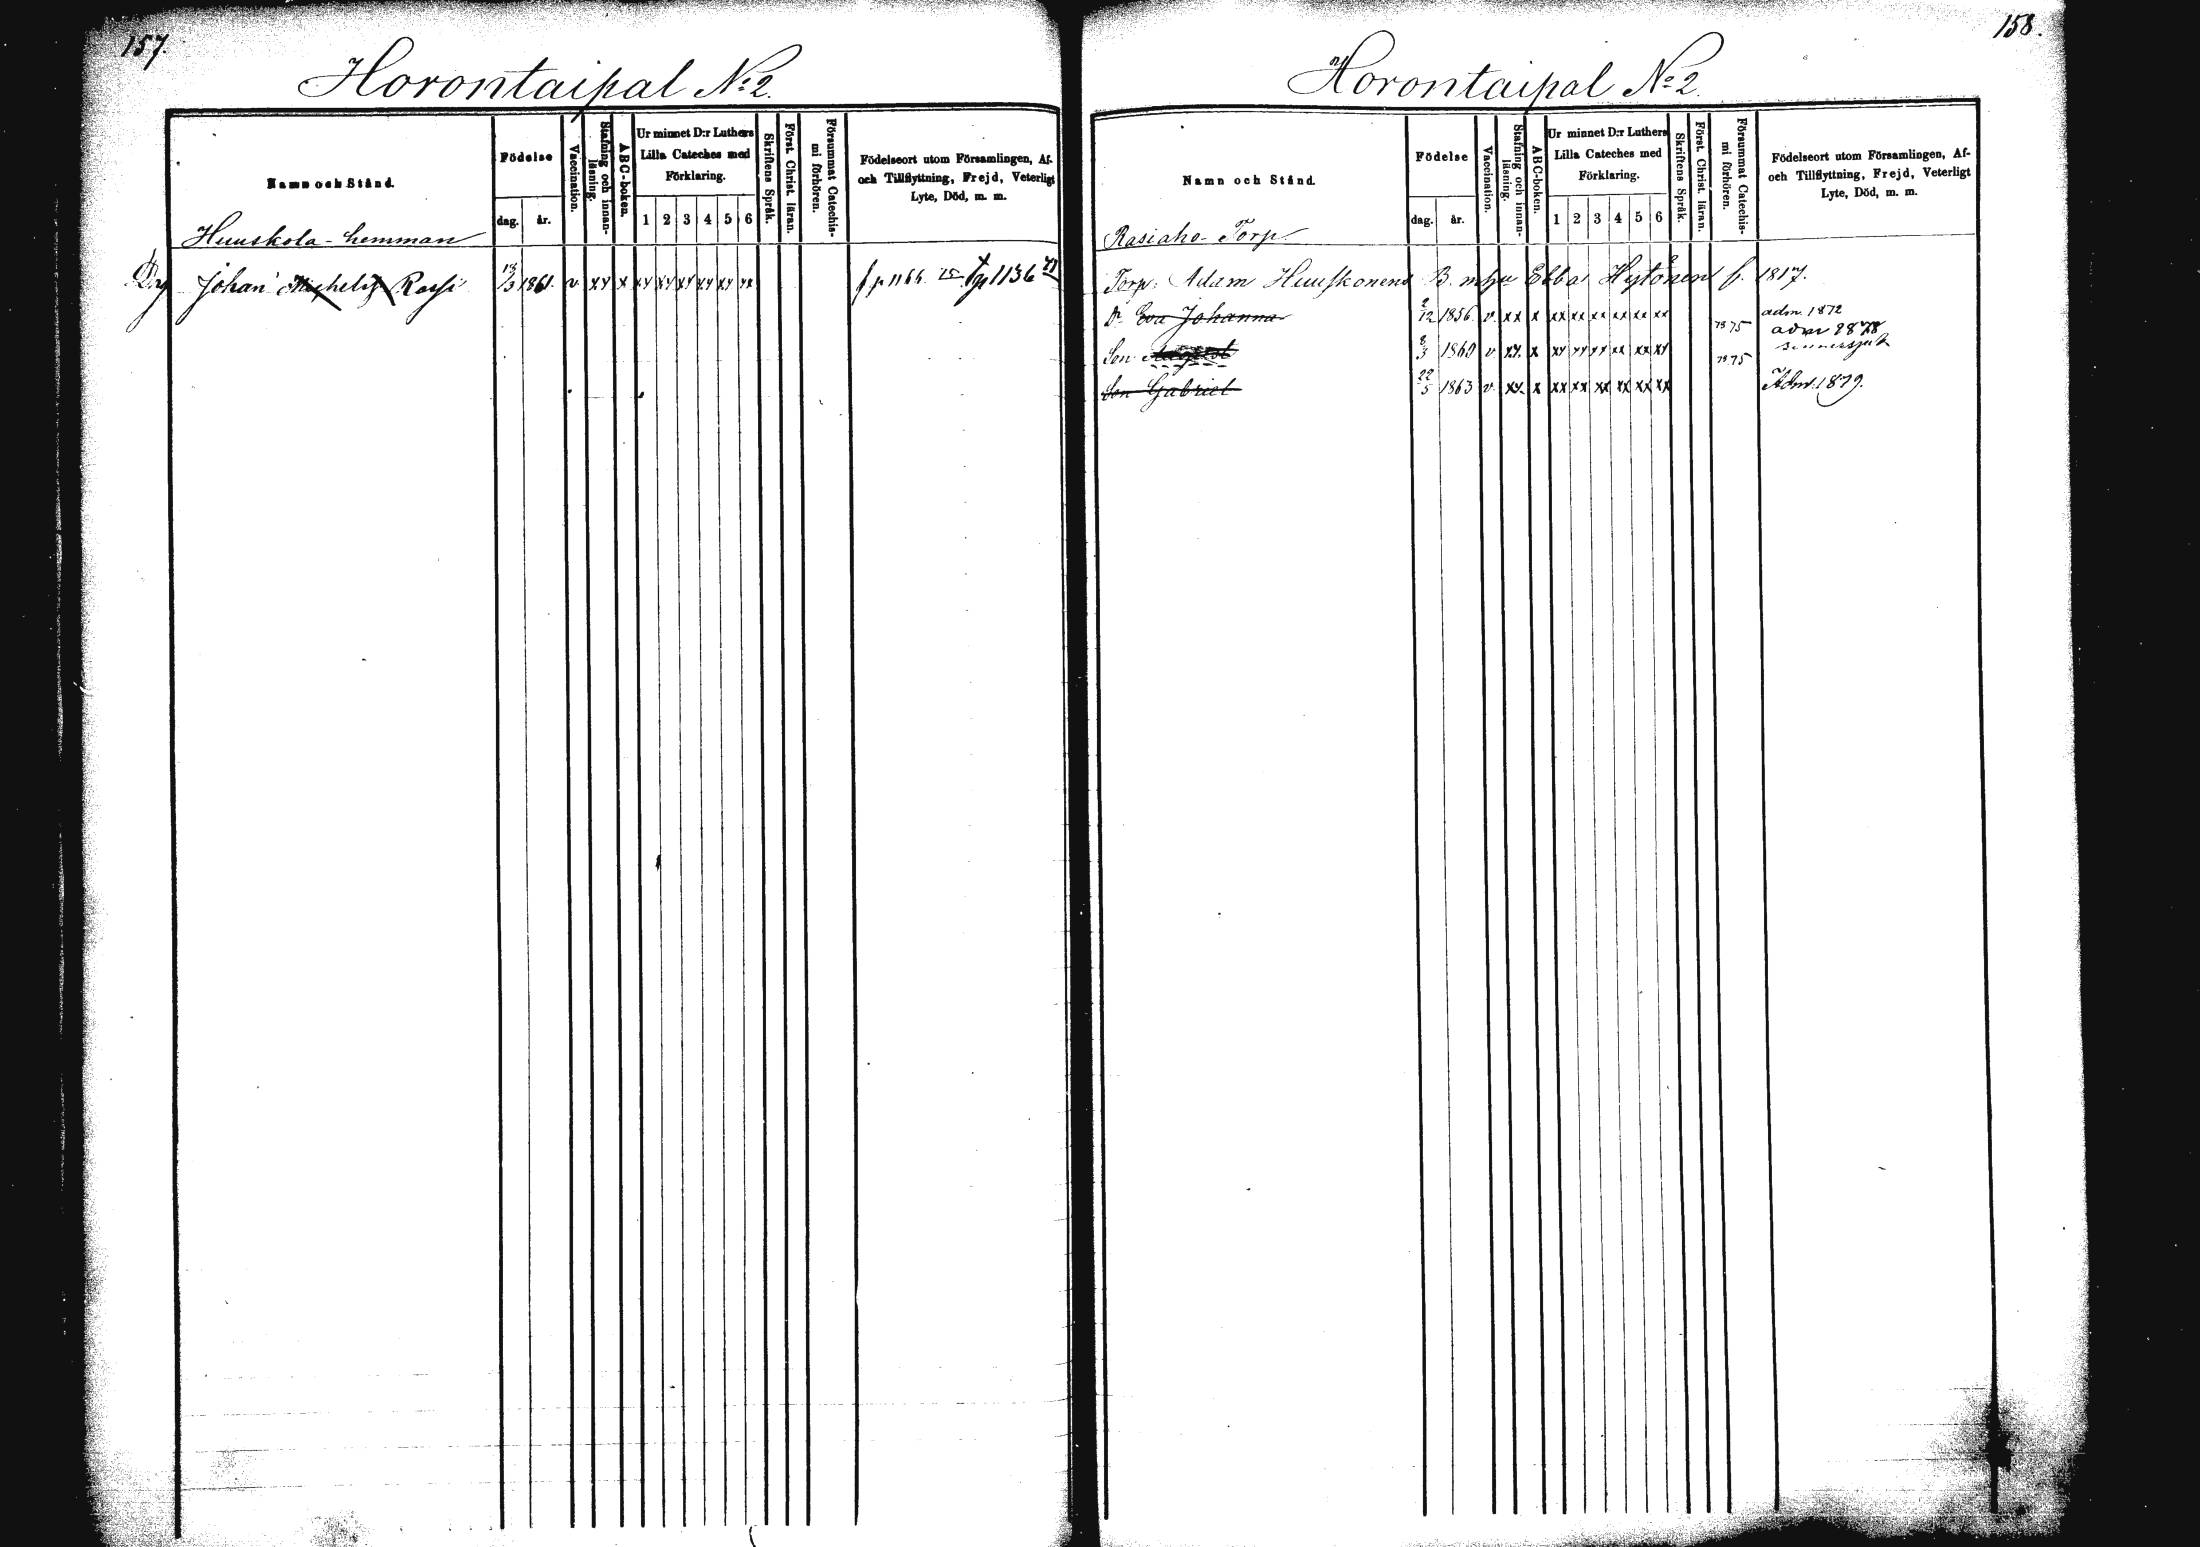 157.
Horontaipal No 2.
Namn och Stånd.
Födelse
dag. år.
Vaccination.
Stafning och innan-
läsning.
ABC-boken.
Ur minnet D:r Luthers
Lilla Cateches med
Förklaring.
1 2 3 4 5 6
Skriftens Språk.
Först. Christ. läran.
Försummat Catechis-
mi förhören.
Födelseort utom Församlingen, Af-
och Tillflyttning, Frejd, Veterligt
Lyte, Död, m. m.
Huuskola-hemman
Johan 1861. v. xx x xx xx xx xx xx xx
158.
Horontaipal No 2.
Namn och Stånd.
Födelse
dag. år.
Vaccination.
Stafning och innan-
läsning.
ABC-boken.
Ur minnet D:r Luthers
Lilla Cateches med
Förklaring.
1 2 3 4 5 6
Skriftens Språk.
Först. Christ. läran.
Försummat Catechis-
mi förhören.
Födelseort utom Församlingen, Af-
och Tillflyttning, Frejd, Veterligt
Lyte, Död, m. m.
Rasiaho-Torp
Torp: Adam Huuskonens B. Ebba Hytönen f. 1817.
Dr Eva Johanna 2/12 1856. v. xx x xx xx xx xx xx xx adm. 1872
Son August 8/3 1860 v. xx x xx xx xx xx xx xx 75 adm 1878
75 sinnessjuk
Son Gabriel 22/5 1863 v. xx x xx xx xx xx xx xx Adm. 1879.